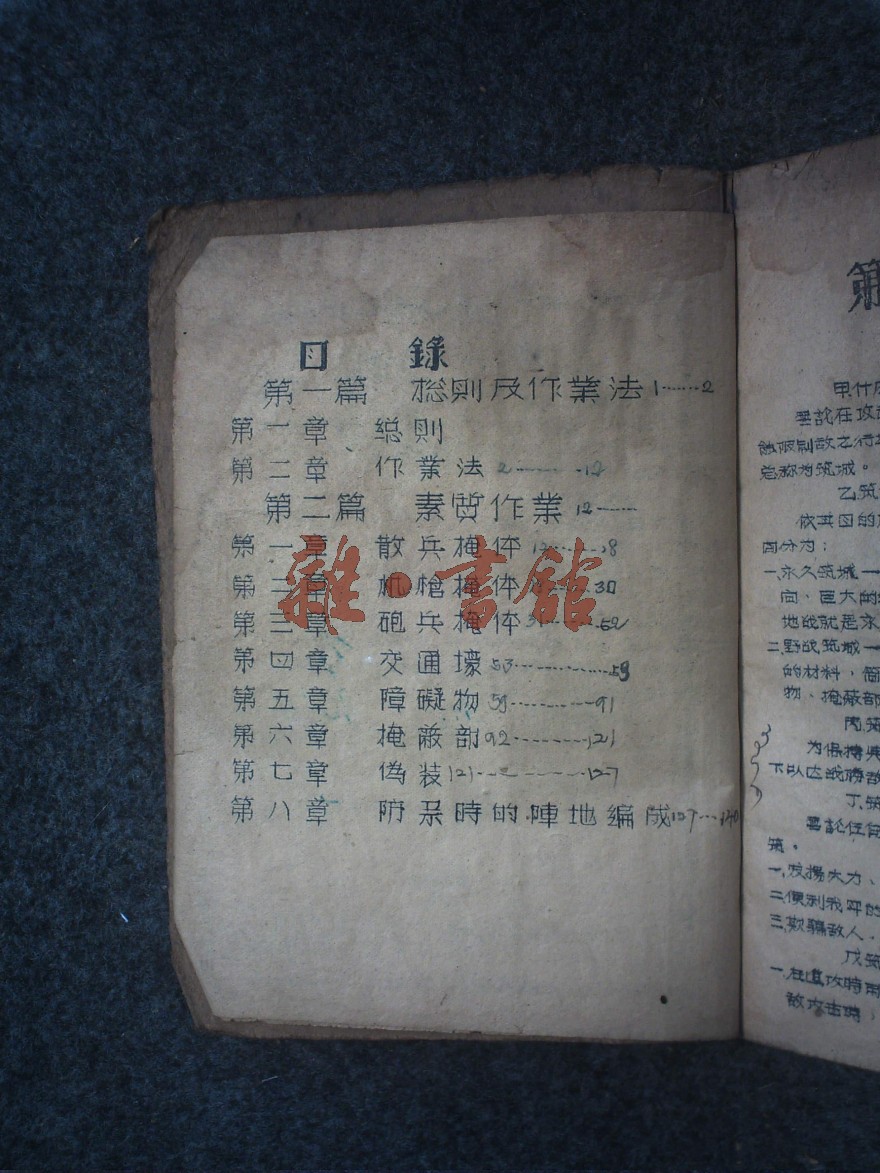 目 錄
第一篇 総則及作業法 1……2
第一章 総則
第二章 作業法 2………12
第二篇 素質作業 12……
第一章 散兵掩体
第二章 机槍掩体 30
第三章 砲兵掩体 31………52
第四章 交通壕 53…………59
第五章 障礙物 59…………91
第六章 掩蔽部 92………121
第七章 偽装 121………127
第八章 防呆時的陣地編成 127…140
雜·書館
第
甲什
是説在攻
敵限制敌之行
总称为筑城。
乙筑
依其因的
四分为：
一永久筑城一
向，巨大的
地战就是永
二野战筑城一
的材料，简
物、掩蔽部
丙筑
为保持
下以达战勝敌
丁筑
筑。
一发揚火力、
二便利我軍的
三欺騙敌人、
戊筑
一在進攻時
敌攻击時；